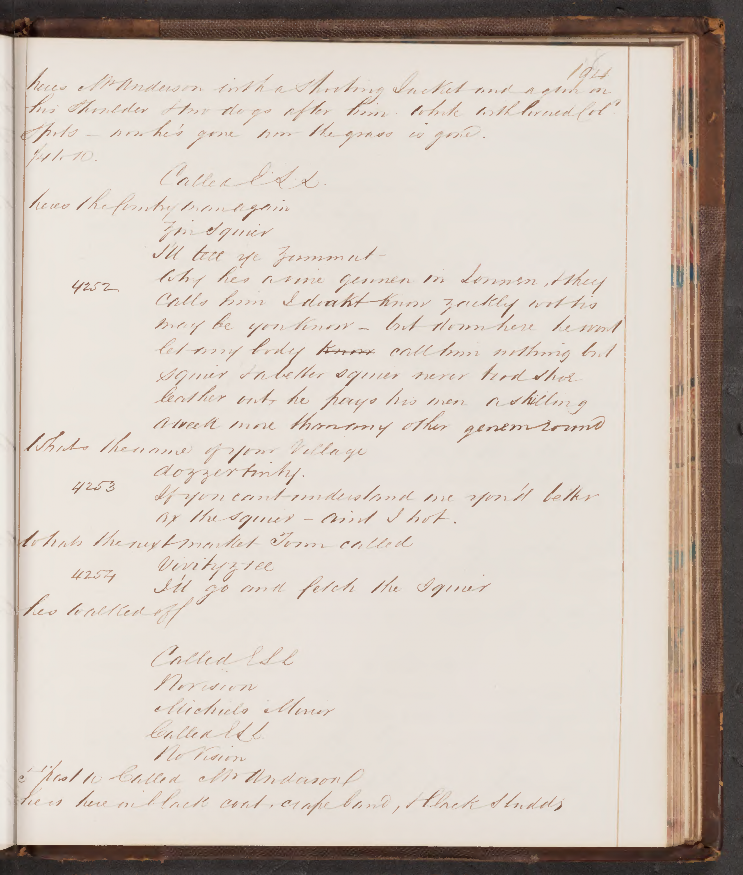 194
heres Mr Anderson with a Shooting Jacket and a gun on
his Shoulder & two dogs after him. White with
Spots – now he's gone now the grass is gone.
to 10.
Called E.S.L.
heres the Countryman again
Zur Squier
I'll tell ye Zummut –
4252 Why hes a vine genmen in Lonnon, & they
calls him I doaht know zackley wot his
may be you know – but down here he wont
let any body know call him nothing but
Squier & a better squier never trod shoe
leather vor he pays his men a shilling
a week more than any other genem round
Whats the name of your Village
dozzertinty.
4253 If you cant understand me you'd better
ax the squier – aint I hot.
Whats the next market Town called
4254 I'll go and fetch the Squier
hes walked off
Called E S L
No vision
Michiels Mirror
Called E S L
No Vision
past 10 Called Mr Anderson
he is here in black coat – crape band, & black Studds